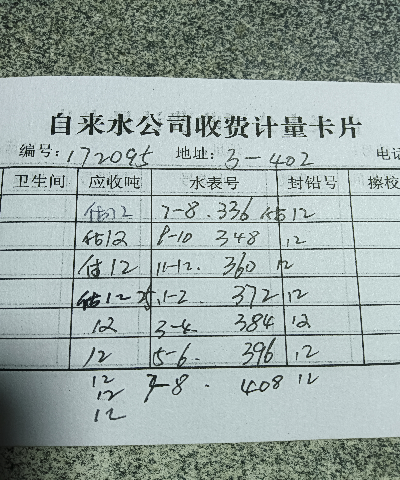 自来水公司收费计量卡片
编号: 172095 地址: 3-402 电话
卫生间 应收吨 水表号 封铅号 擦校
估12 7-8. 336 估12
估12 8-10 348 .12
估12 11-12. 360 12
估12 1-2 372 12
12 3-4 384 12
12 5-6. 396 .12
12 7-8. 408 12
12
12